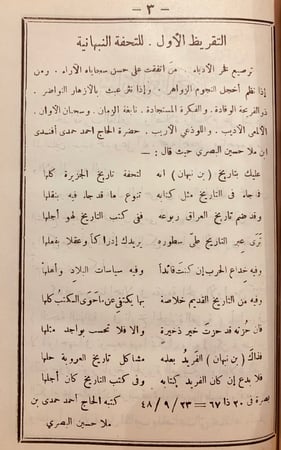 — ٣ —
التقريظ الأول . للتحفة النبهانية
ترصيع فخر الأدباء . من اتفقت على حسن سجاياه الآراء . ومن
إذا نظم أخجل النجوم الزواهر . وإذا نثر عبث بالازهار النواضر .
ذو القريحة الوقادة . والفكرة المستجادة . نابغة الزمان . وسحبان الأوان .
الألمعي الأديب . واللوذعي الأريب . حضرة الحاج احمد حمدي أفندي
ابن ملا حسين البصري حيث قال : —
عليك بتاريخ (بن نبهان) انه لتحفة تاريخ الجزيرة كلها
فما جاء في التاريخ مثل كتابه تنوع ما قد جاء فيه بنقلها
وقد ضم تاريخ العراق ربوعه ففي كتب التاريخ لهو أجلها
ترى عبر التاريخ طي سطوره يزيدك إدراكاً وعقلا بفعلها
وفيه خداع الحرب إن كنت قائداً وفيه سياسات البلاد وأهلها
وفيه من التاريخ القديم خلاصة بها يكتفي عن ما حوى الكتب كلها
فان حزته قد حزت خير ذخيرة والا فلا تحسب بواجد مثلها
فذاك (بن نبهان) الفريد بعلمه مشاكل تاريخ العروبة حلها
فلا بدع إن كان الفريد كتابه وفي كتب التاريخ كان أجلها
بصرة في ٢٠ ذا ٦٧ = ٢٣ / ٩ / ٤٨ كتبه الحاج أحمد حمدي بن
ملا حسين البصري